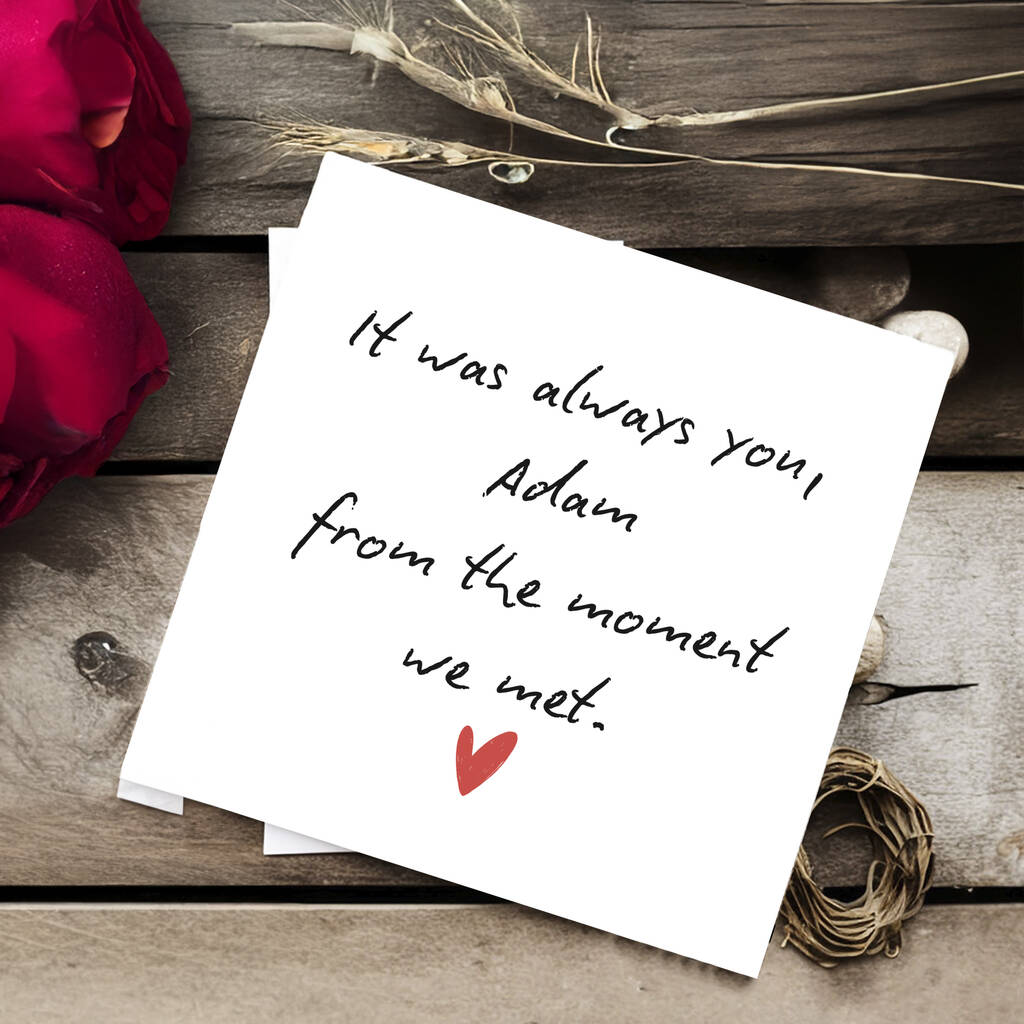 It was always you,
Adam
from the moment
we met.